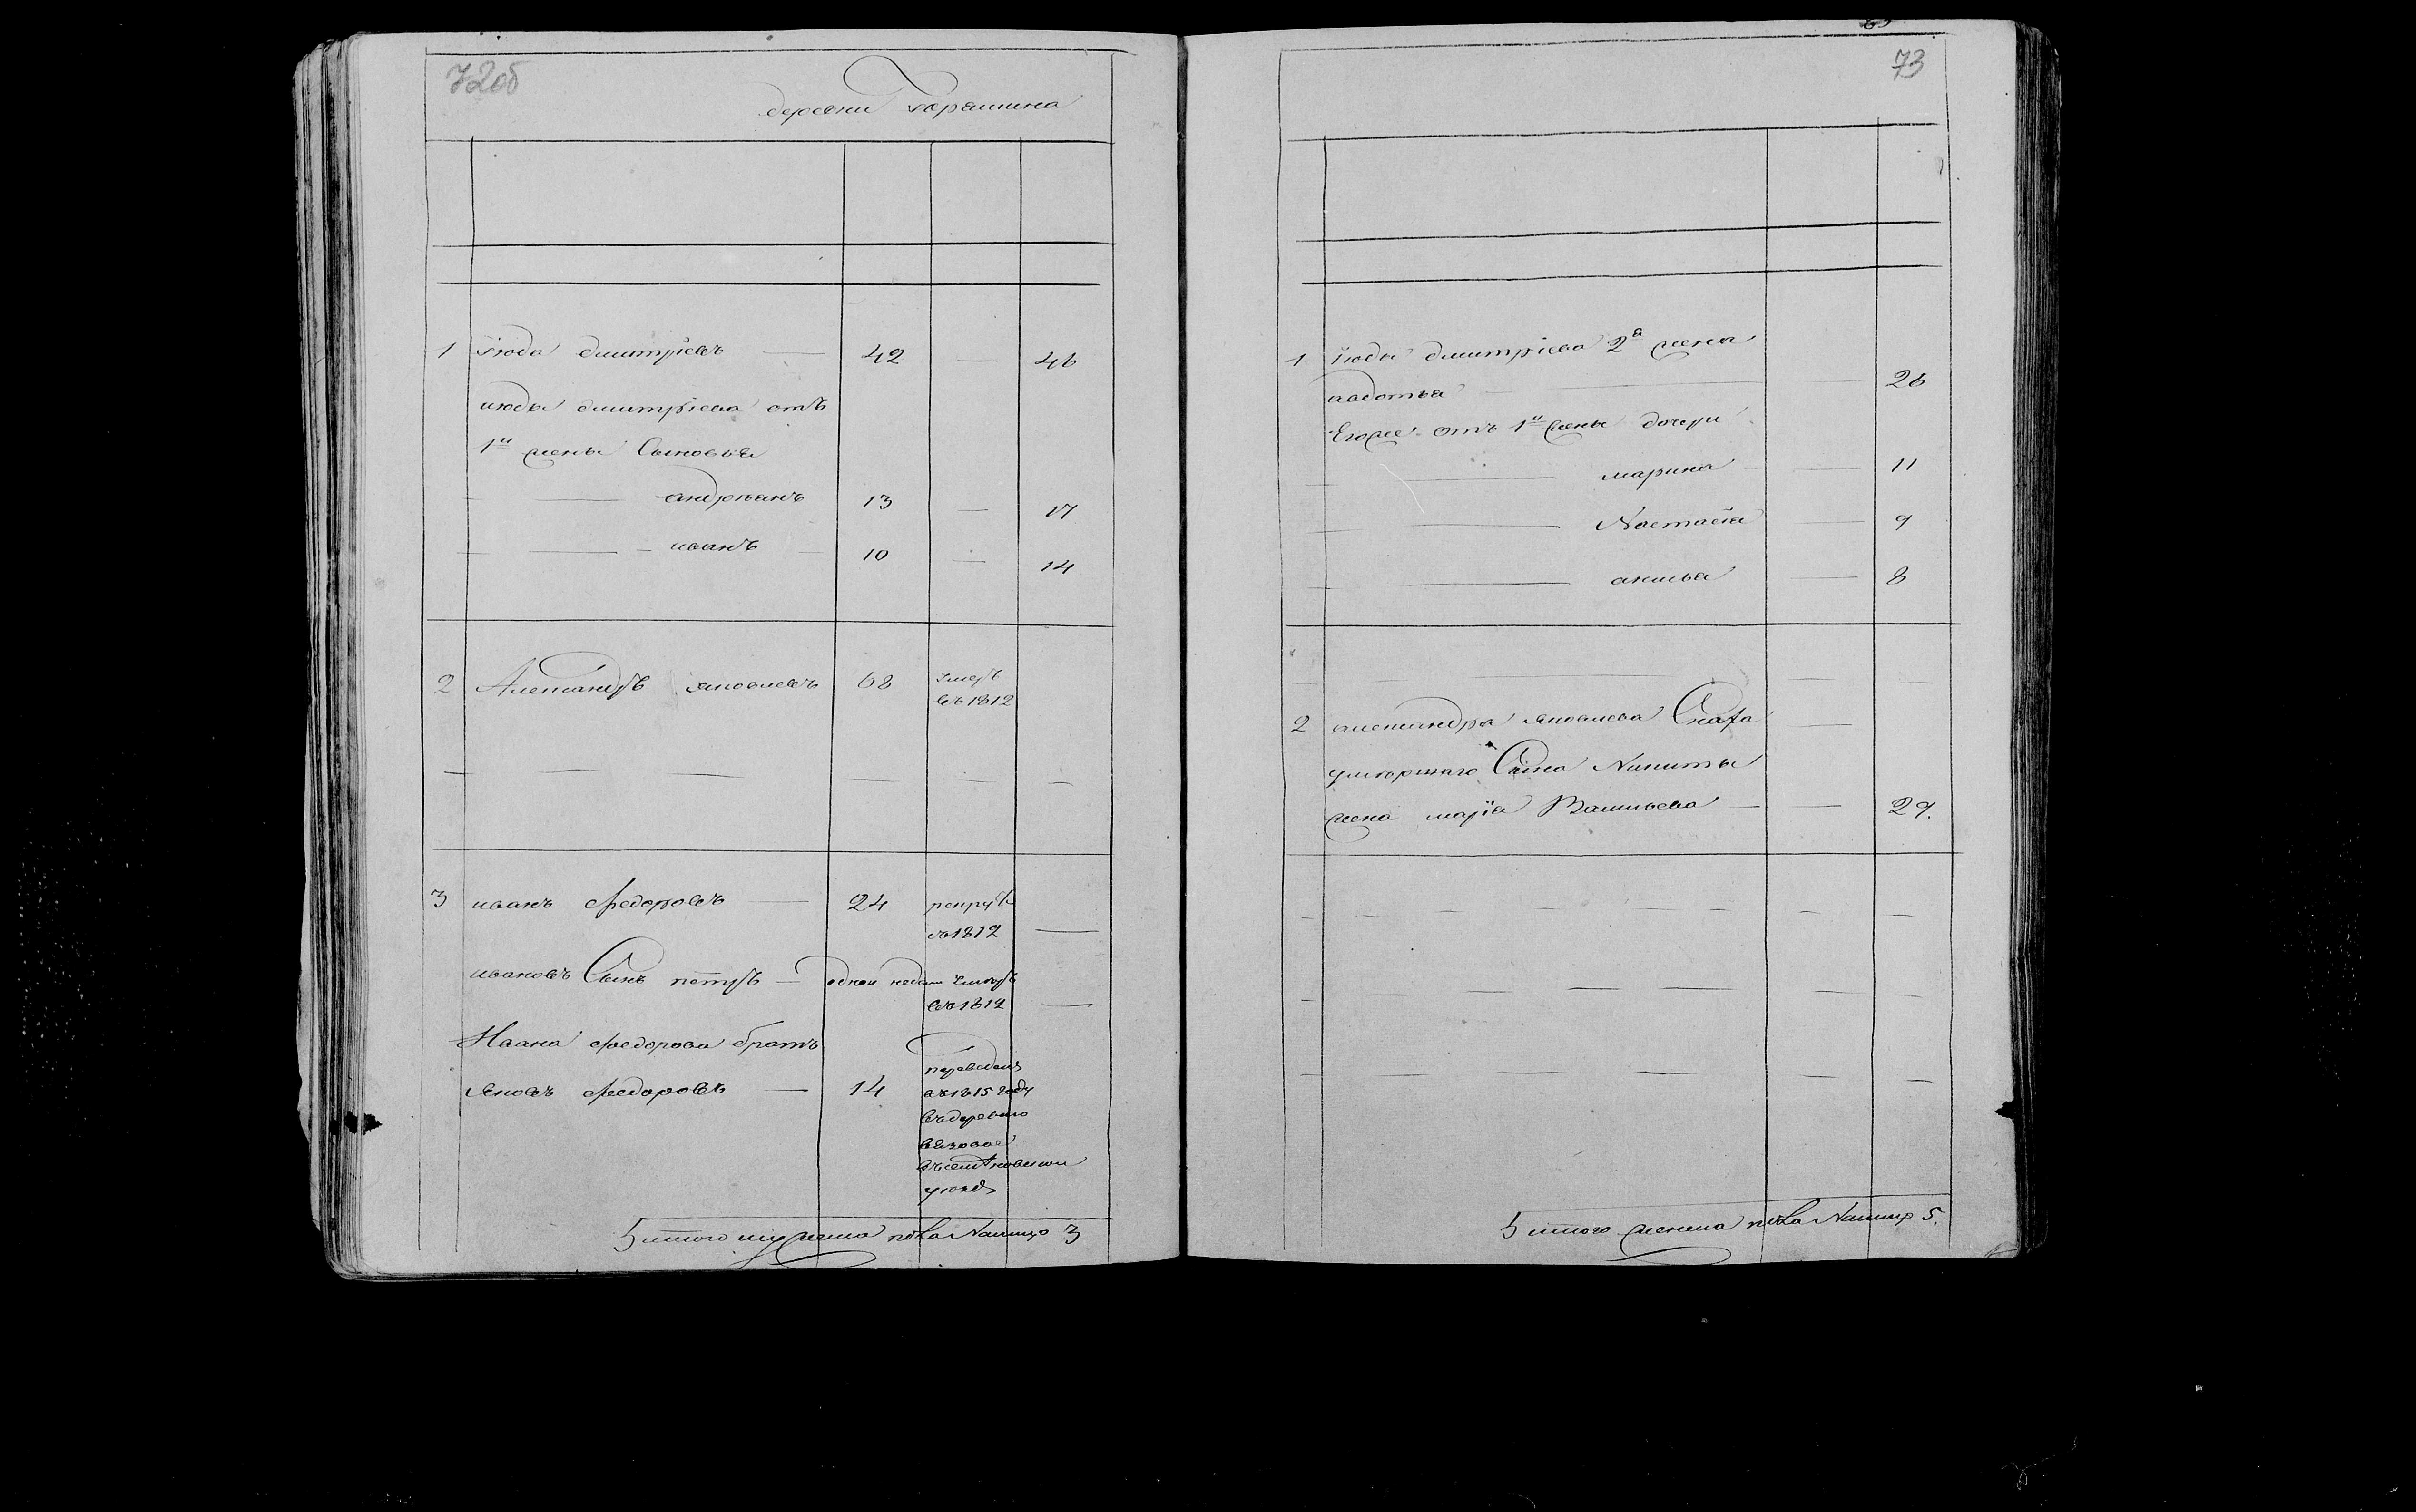 72об
деревни Горяшина
1 Июда дмитріевъ 42 — 46
июды дмитріева отъ
1й жены Сыновья
андреянъ 13 — 17
иванъ 10 — 14
2 Александръ яковлевъ 68 умеръ
въ 1812
3 иванъ Федоровъ — 24 рекрутъ
въ 1812 —
ивановъ Сынъ петръ — одной недели умеръ
въ 1812 —
Ивана Федорова братъ
яковъ Федоровъ — 14 переведенъ
въ 1815 году
въ деревню
въ
уездъ
итого мужеска пола Налицо 3
73
1 Июды дмитріева 2я жена
авдотья — 26
Егоже отъ 1й жены дочери
марина — 11
Настасья — 9
акилина — 8
2 александра яковлева Снаха
умершаго Сына Никиты
жена марія Васильева — — 29.
итого женска пола Налицо 5.